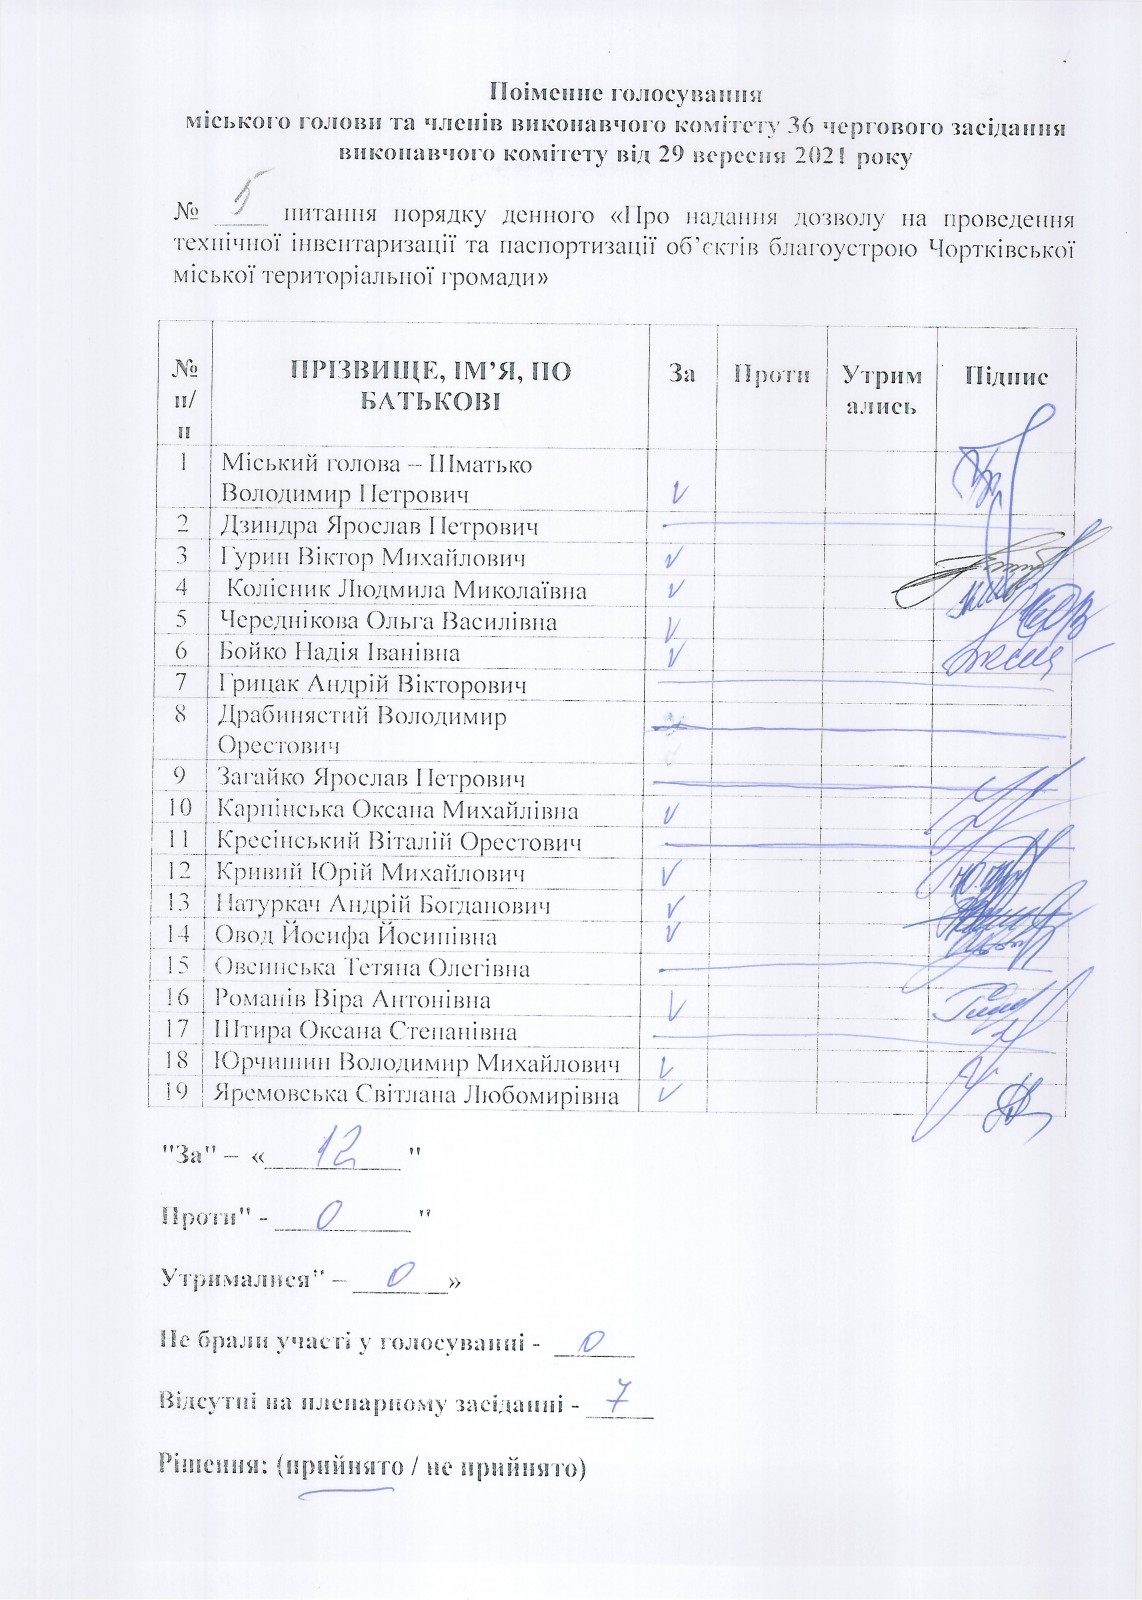 Поіменне голосування
міського голови та членів виконавчого комітету 36 чергового засідання
виконавчого комітету від 29 вересня 2021 року
№ 5 питання порядку денного «Про надання дозволу на проведення
технічної інвентаризації та паспортизації об’єктів благоустрою Чортківської
міської територіальної громади»
№ п/п ПРІЗВИЩЕ, ІМ’Я, ПО БАТЬКОВІ За Проти Утрим ались Підпис
1 Міський голова – Шматько
Володимир Петрович
2 Дзиндра Ярослав Петрович
3 Гурин Віктор Михайлович
4 Колісник Людмила Миколаївна
5 Череднікова Ольга Василівна
6 Бойко Надія Іванівна
7 Грицак Андрій Вікторович
8 Драбинястий Володимир
Орестович
9 Загайко Ярослав Петрович
10 Карпінська Оксана Михайлівна
11 Кресінський Віталій Орестович
12 Кривий Юрій Михайлович
13 Натуркач Андрій Богданович
14 Овод Йосифа Йосипівна
15 Овсинська Тетяна Олегівна
16 Романів Віра Антонівна
17 Штира Оксана Степанівна
18 Юрчишин Володимир Михайлович
19 Яремовська Світлана Любомирівна
"За" – « 12 "
Проти" - 0 "
Утрималися" – 0 »
Не брали участі у голосуванні - 0
Відсутні на пленарному засіданні - 7
Рішення: (прийнято / не прийнято)